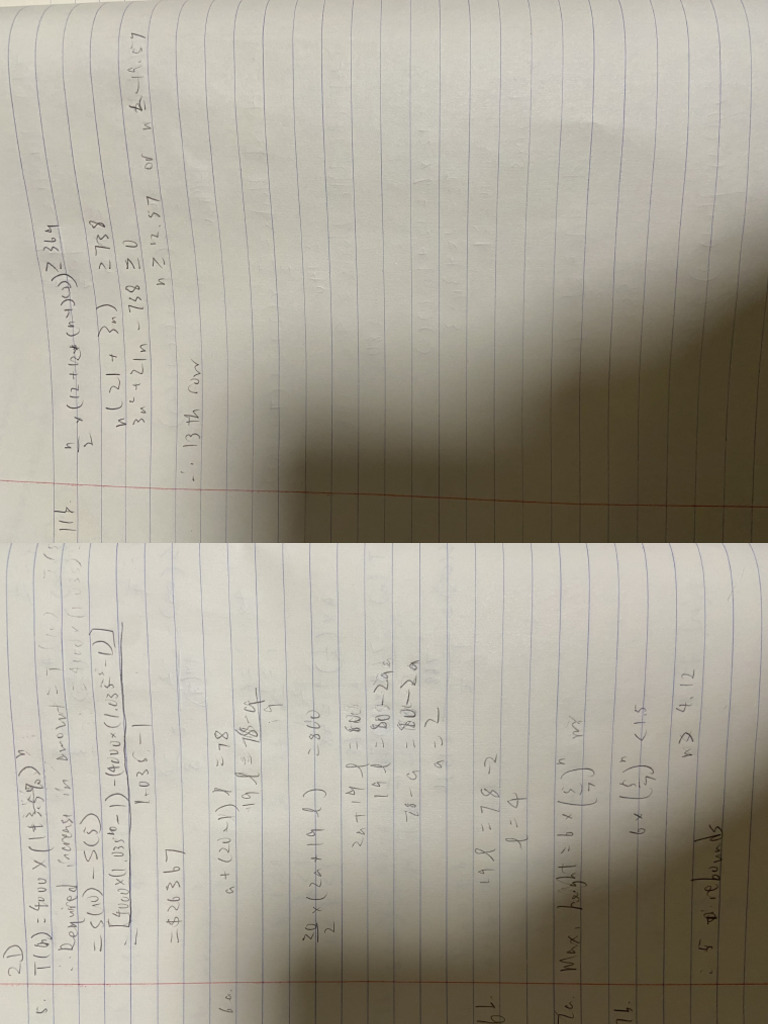 2D
5. T(n) = 4000 × (1+3.5%)ⁿ
∴ Required increase in amount =
= S(10) - S(5)
= [4000×(1.035¹⁰-1)-(4000×(1.035⁵-1)]
1.035-1
= $26367
6a. a+(20-1)l = 78
19l = 78-a
20/2 × (2a+19l) = 800
2a+19l = 80
19l = 80-2a
78-a = 80-2a
a = 2
6b. 19l = 78-2
l = 4
7a. Max. height = 6 × (5/7)ⁿ m
7b. 6 × (5/7)ⁿ < 1.5
n > 4.12
∴ 5 rebounds
11b. n/2 × (12+12+(n-1)(3)) ≥ 369
n(21+3n) ≥ 738
3n²+21n-738 ≥ 0
n ≥ 12.57 or n ≤ -19.57
∴ 13th row